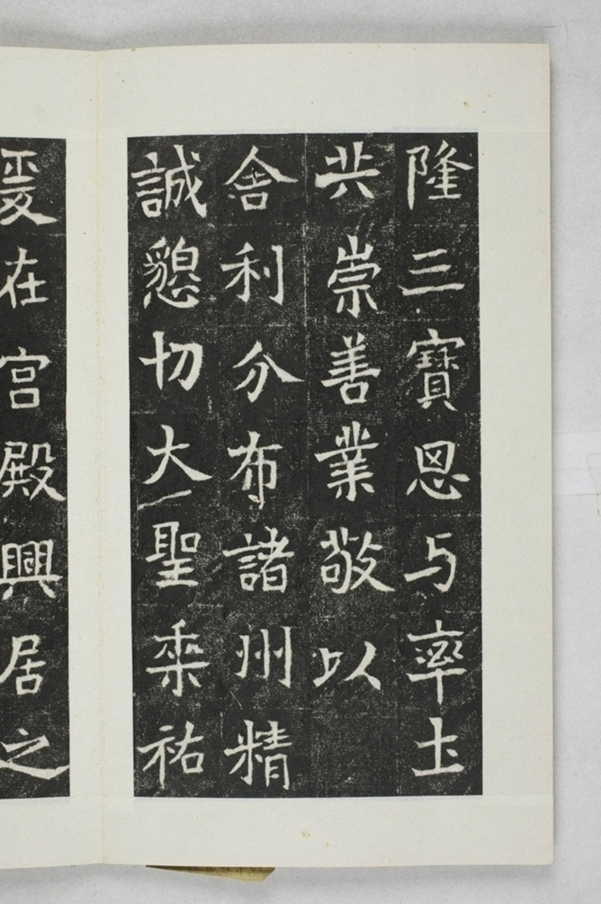 隆三寶思与率土
共崇善業敬以
舍利分布諸州精
誠懇切大聖乗祐
爰在宮殿興居之